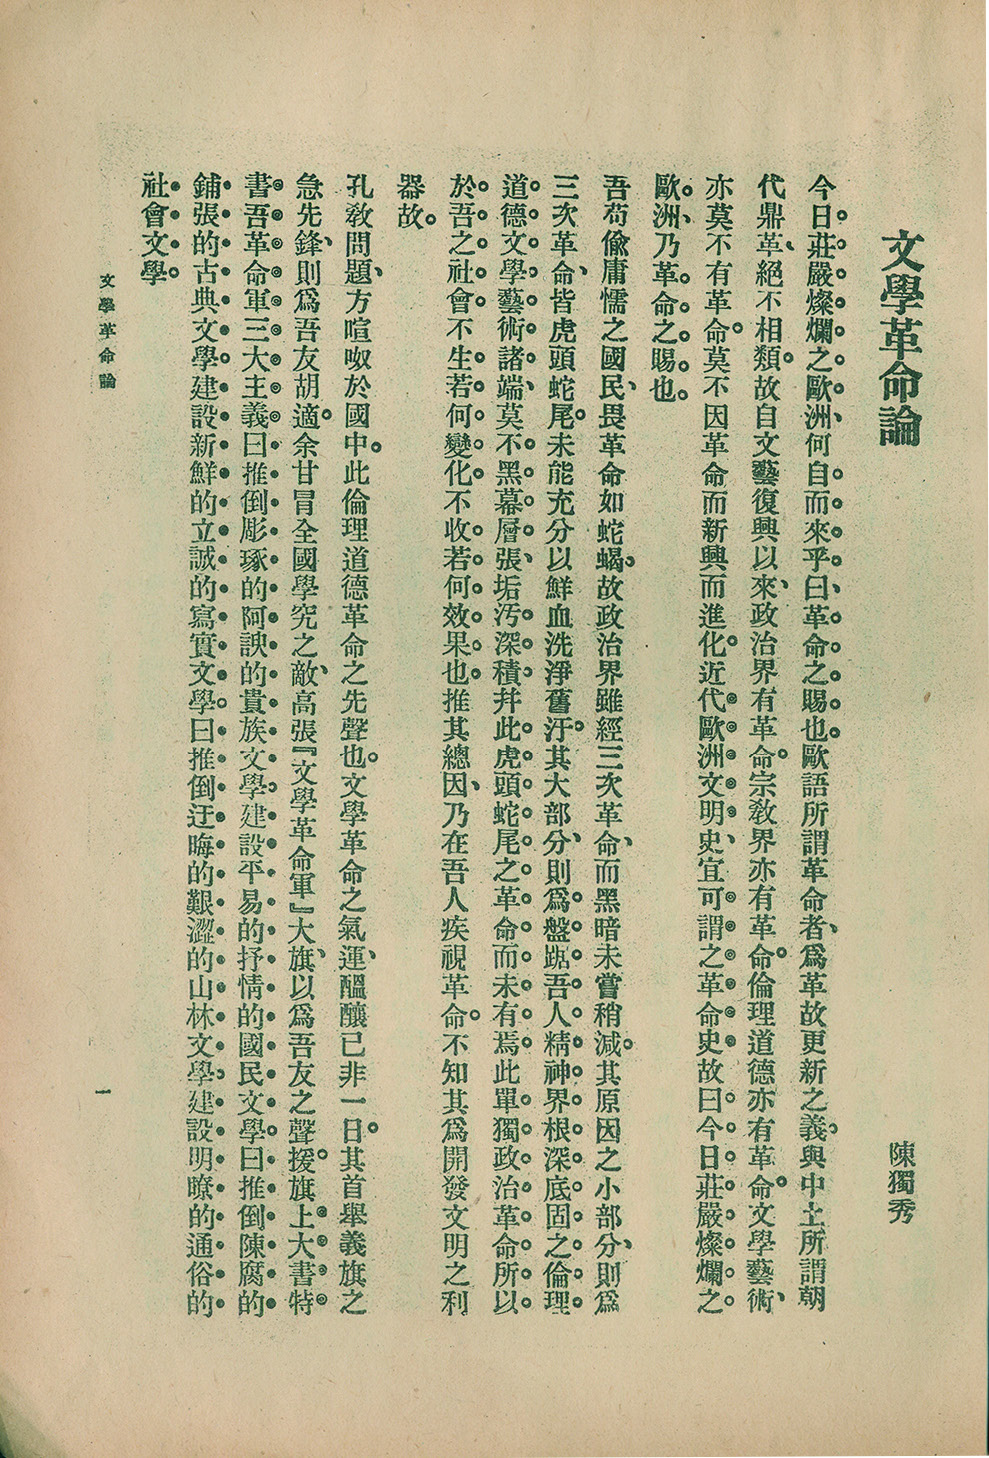 文學革命論
陳獨秀
今日莊嚴燦爛之歐洲、何自而來乎。曰、革命之賜也。歐語所謂革命者、爲革故更新之義。與中土所謂朝
代鼎革、絕不相類。故自文藝復興以來、政治界有革命。宗敎界亦有革命。倫理道德亦有革命。文學藝術、
亦莫不有革命。莫不因革命而新興而進化。近代歐洲文明史、宜可謂之革命史。故曰今日莊嚴燦爛之
歐洲、乃革命之賜也。
吾苟偸庸懦之國民、畏革命如蛇蝎。故政治界雖經三次革命、而黑暗未嘗稍減。其原因之小部分、則爲
三次革命、皆虎頭蛇尾。未能充分以鮮血洗淨舊汙。其大部分、則爲盤踞吾人精神界根深底固之倫理
道德文學藝術諸端、莫不黑幕層張、垢汚深積。幷此虎頭蛇尾之革命而未有焉。此單獨政治革命所以
於吾之社會、不生若何變化、不收若何效果也。推其總因、乃在吾人疾視革命。不知其爲開發文明之利
器故。
孔敎問題、方喧呶於國中。此倫理道德革命之先聲也。文學革命之氣運、醞釀已非一日。其首舉義旗之
急先鋒、則爲吾友胡適。余甘冒全國學究之敵、高張『文學革命軍』大旗、以爲吾友之聲援。旗上大書特
書吾革命軍三大主義。曰推倒彫琢的阿諛的貴族文學。建設平易的抒情的國民文學。曰推倒陳腐的
鋪張的古典文學。建設新鮮的立誠的寫實文學。曰推倒迂晦的艱澀的山林文學。建設明瞭的通俗的
社會文學。
文學革命論
一